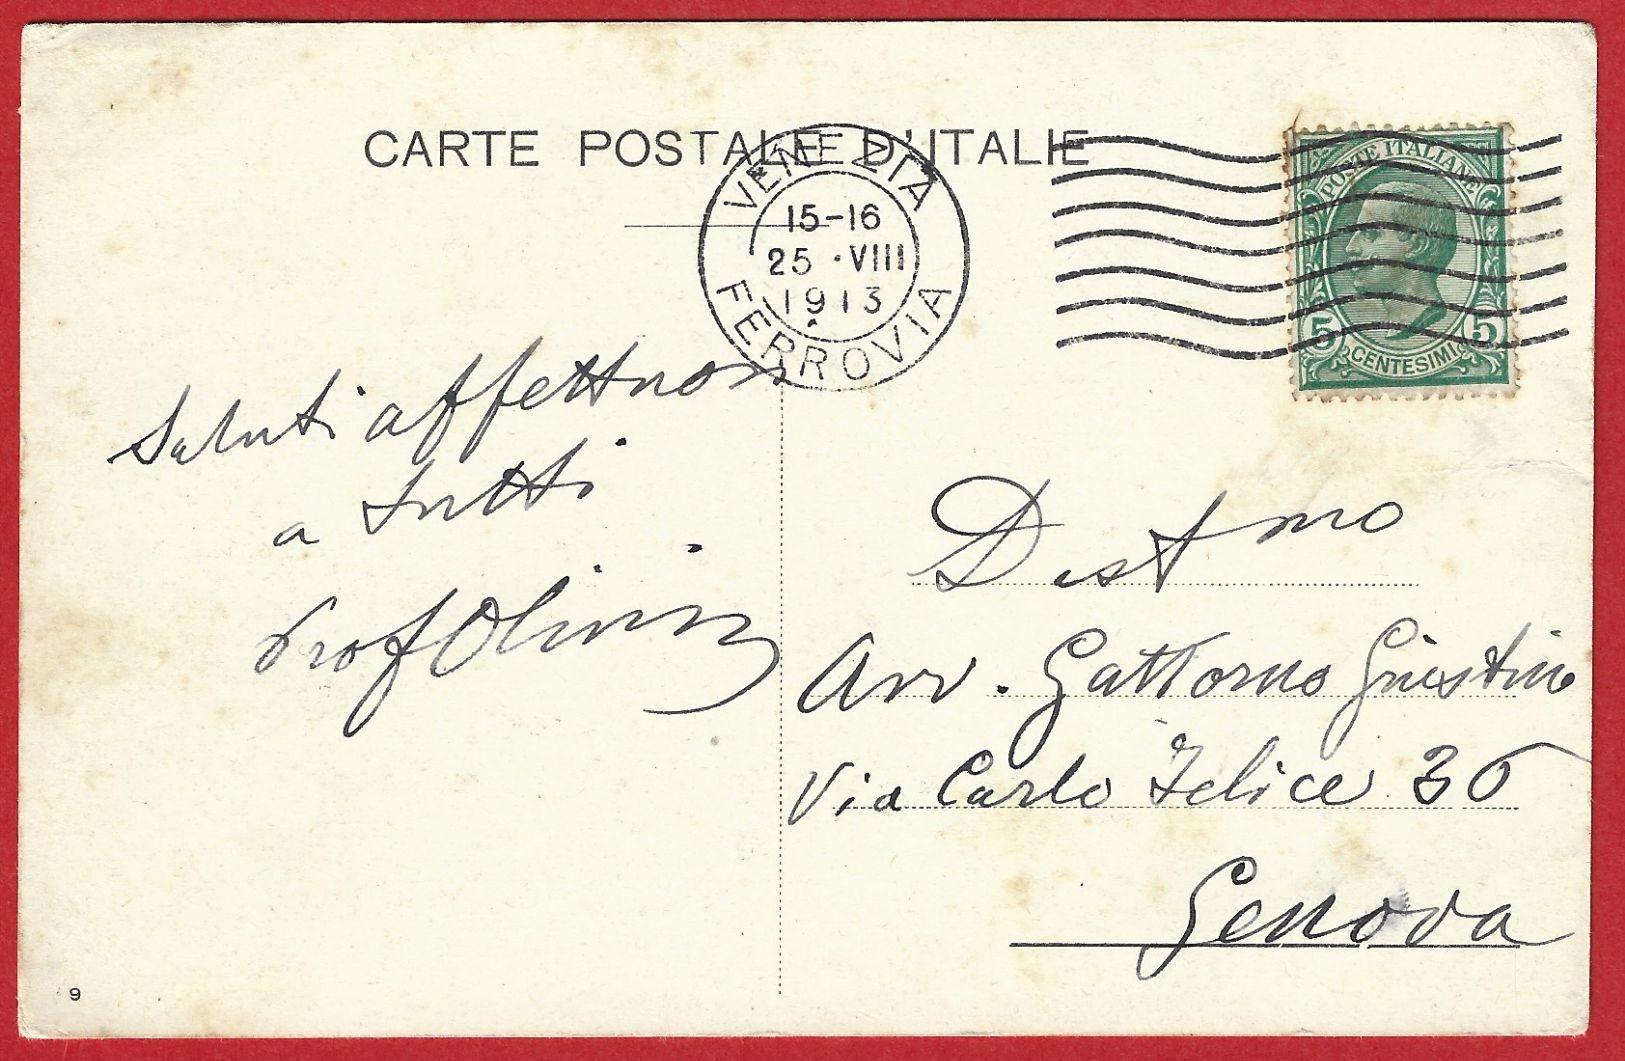 CARTE POSTALE D'ITALIE
VENEZIA
15-16
25 · VIII
1913
FERROVIA
POSTE ITALIANE
5 5
CENTESIMI
Saluti affettuosi
a tutti
Prof Olivini
Distmo
Avv. Gattorno Giustino
Via Carlo Felice 36
Genova
9